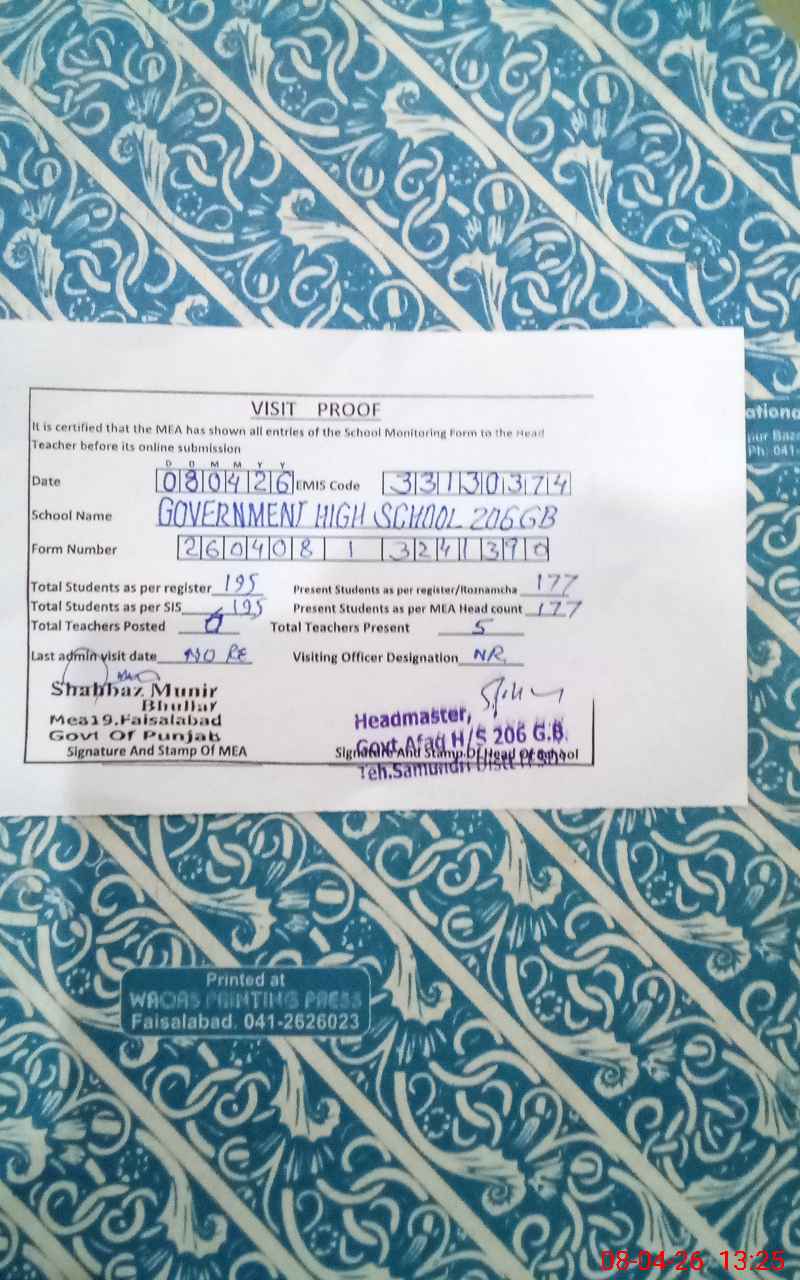 VISIT PROOF
It is certified that the MEA has shown all entries of the School Monitoring Form to the Head
Teacher before its online submission
D D M M Y Y
Date 080426 EMIS Code 33130374
School Name GOVERNMENT HIGH SCHOOL 206GB
Form Number 260408 1 3241390
Total Students as per register 195 Present Students as per register/Roznamcha 177
Total Students as per SIS 195 Present Students as per MEA Head count 177
Total Teachers Posted Total Teachers Present 5
Last admin visit date NO RE Visiting Officer Designation NR
Shahbaz Munir
Bhullar
Mea19.Faisalabad
Govt Of Punjab
Signature And Stamp Of MEA
Headmaster,
Govt Afaq H/S 206 G.B.
Signature And Stamp Of Head Of School
Teh.Samundri Distt
ationa
pur Baza
Ph: 041-
Printed at
WAQAS PRINTING PRESS
Faisalabad. 041-2626023
08-04-26 13:25